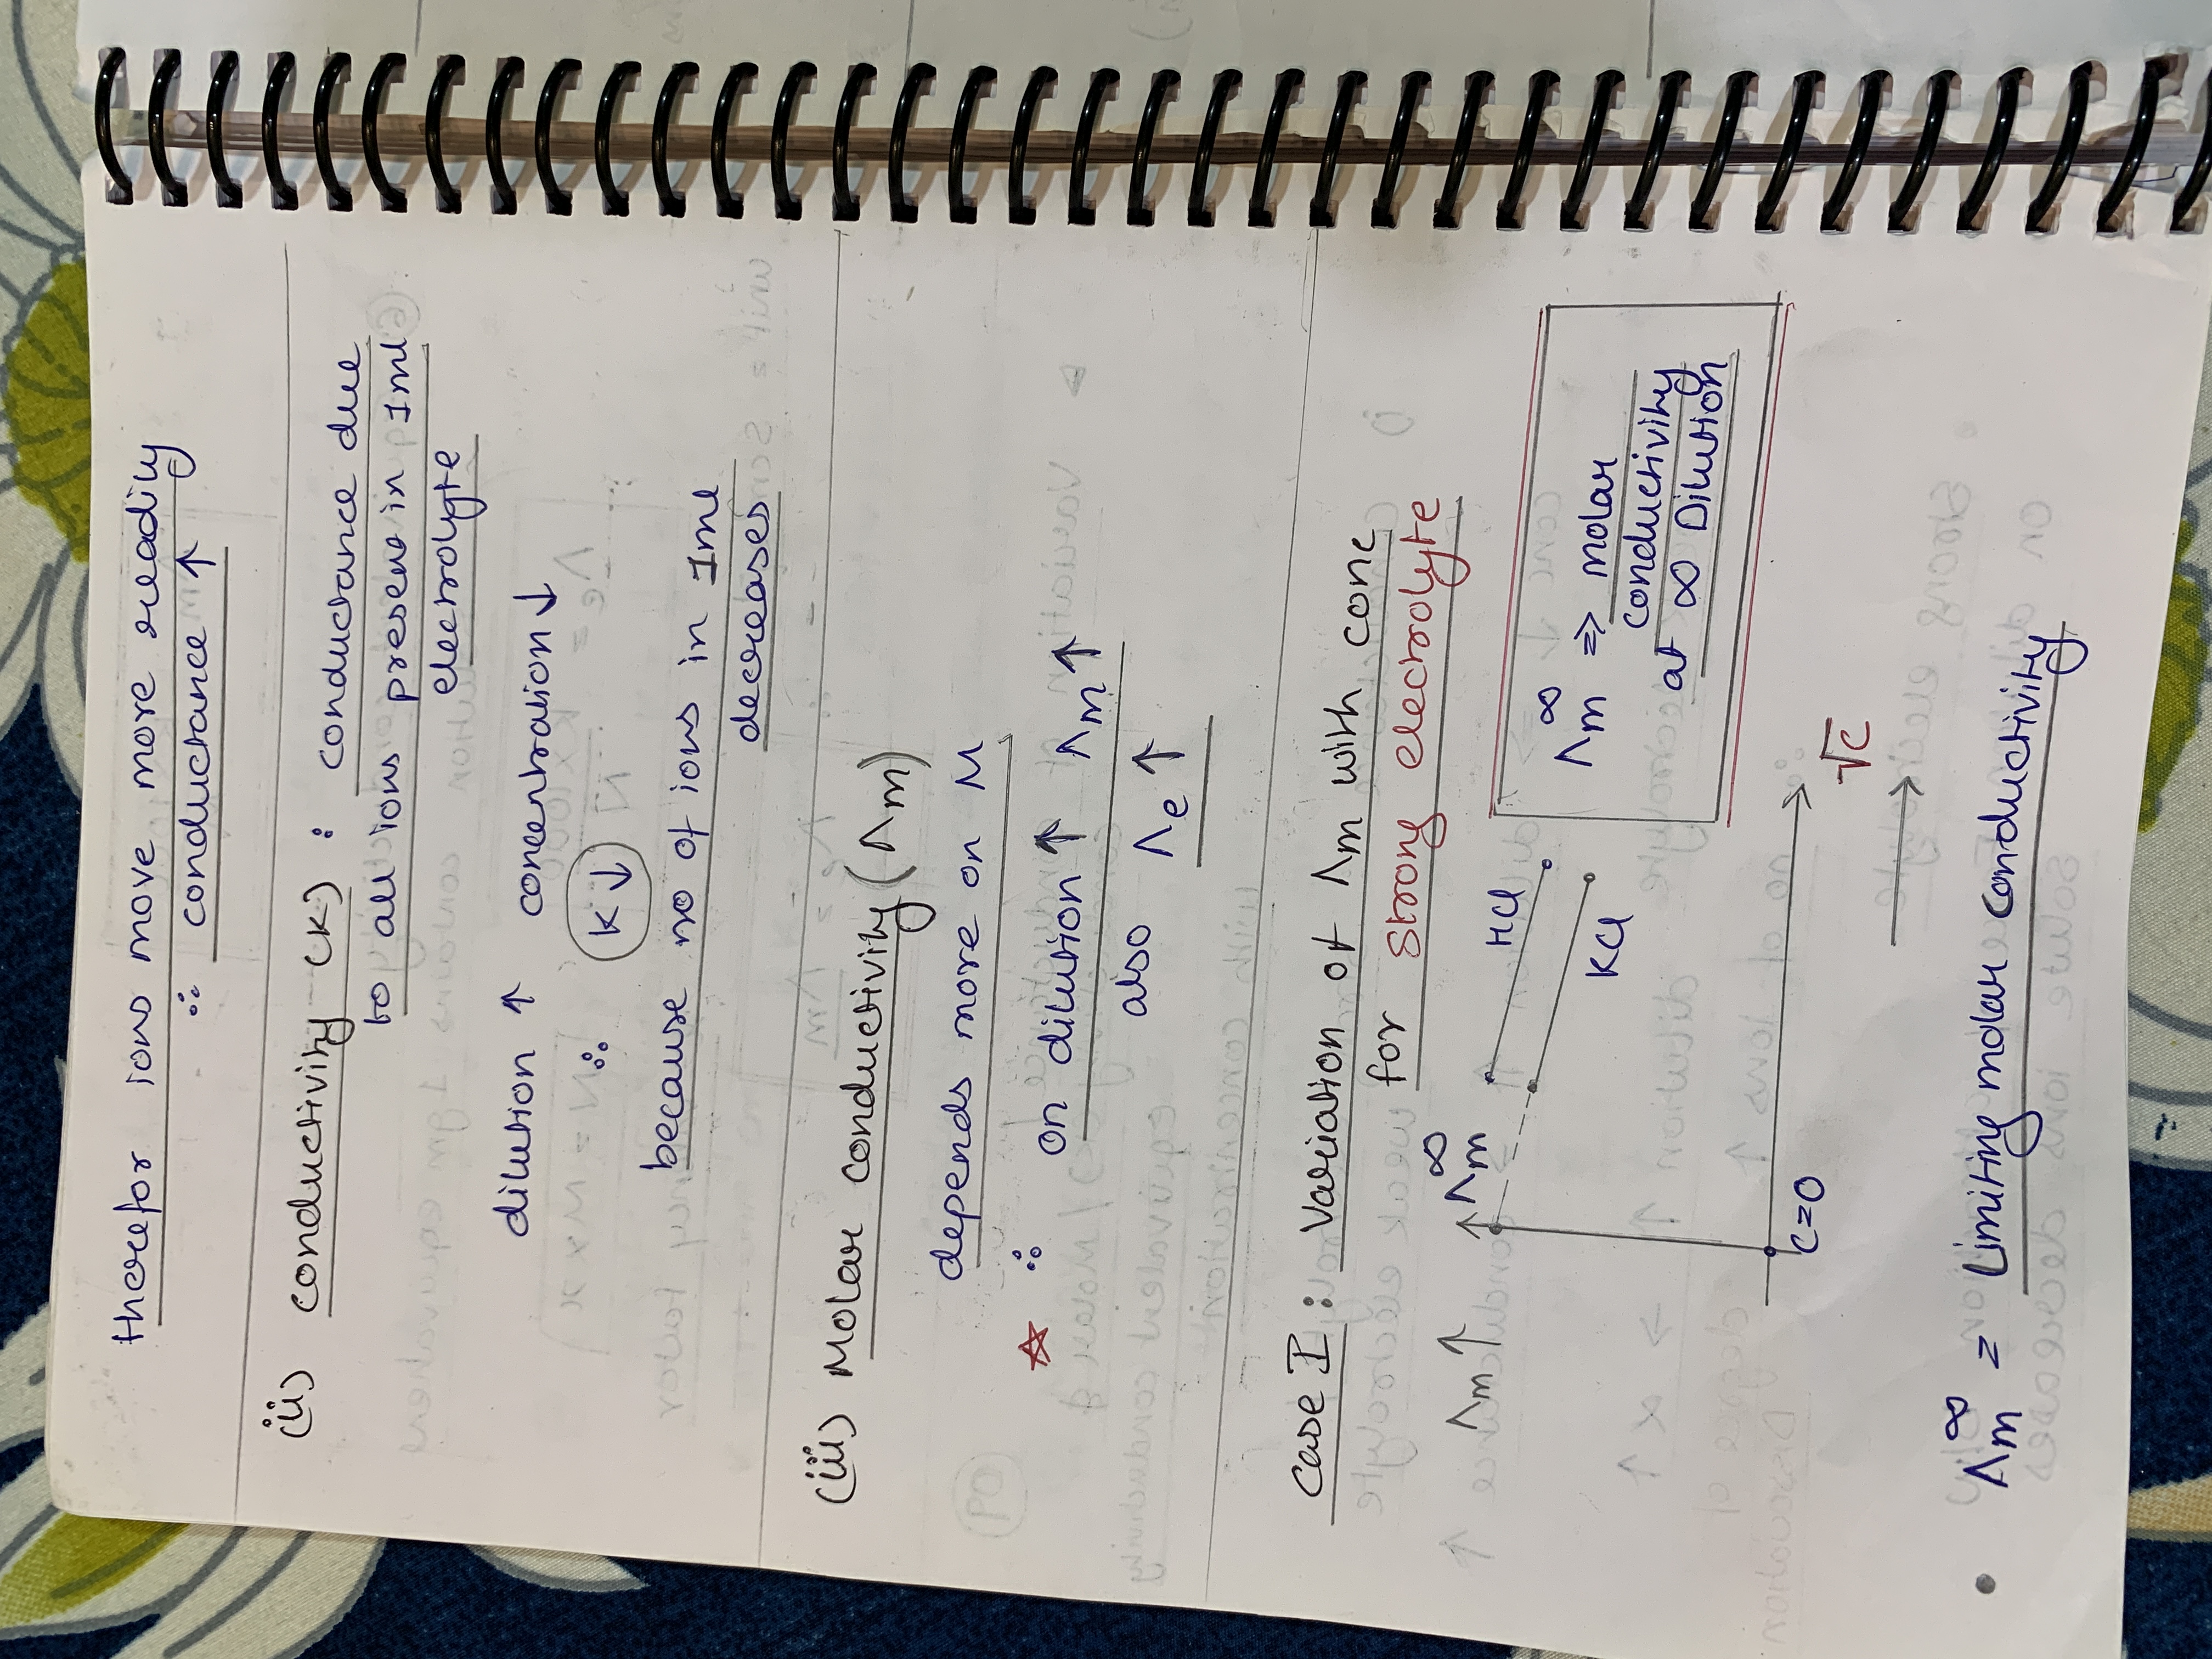 therefor ions move more readily
∴ conductance ↑
(ii) conductivity (K) : conductance due
to all ions present in 1ml
electrolyte
dilution ↑ concentration ↓
∴ K ↓
because no of ions in 1ml
decreases
(iii) Molar conductivity (Λm)
depends more on M
☆ ∴ on dilution ↑ Λm ↑
also Λe ↑
case I : Variation of Λm with conc
for strong electrolyte
Λm ↑ Λm^∞
HCl
KCl
Λm^∞ ⇒ molar
conductivity
at ∞ Dilution
C=0
√C
→
• Λm^∞ = Limiting molar conductivity